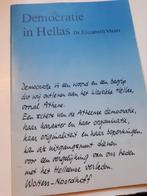 Democratie
in Hellas Dr. Elisabeth Visser
Democratie is een woord en een begrip
die wij ontlenen aan het klassieke Hellas,
vooral Athene.
Een schets van de Atheense democratie,
haar karakter en haar organisatie,
haar originaliteit en haar beperkingen
als uitgangspunt dienen
voor een vergelijking van ons heden
met het Helleense verleden.
Wolters-Noordhoff